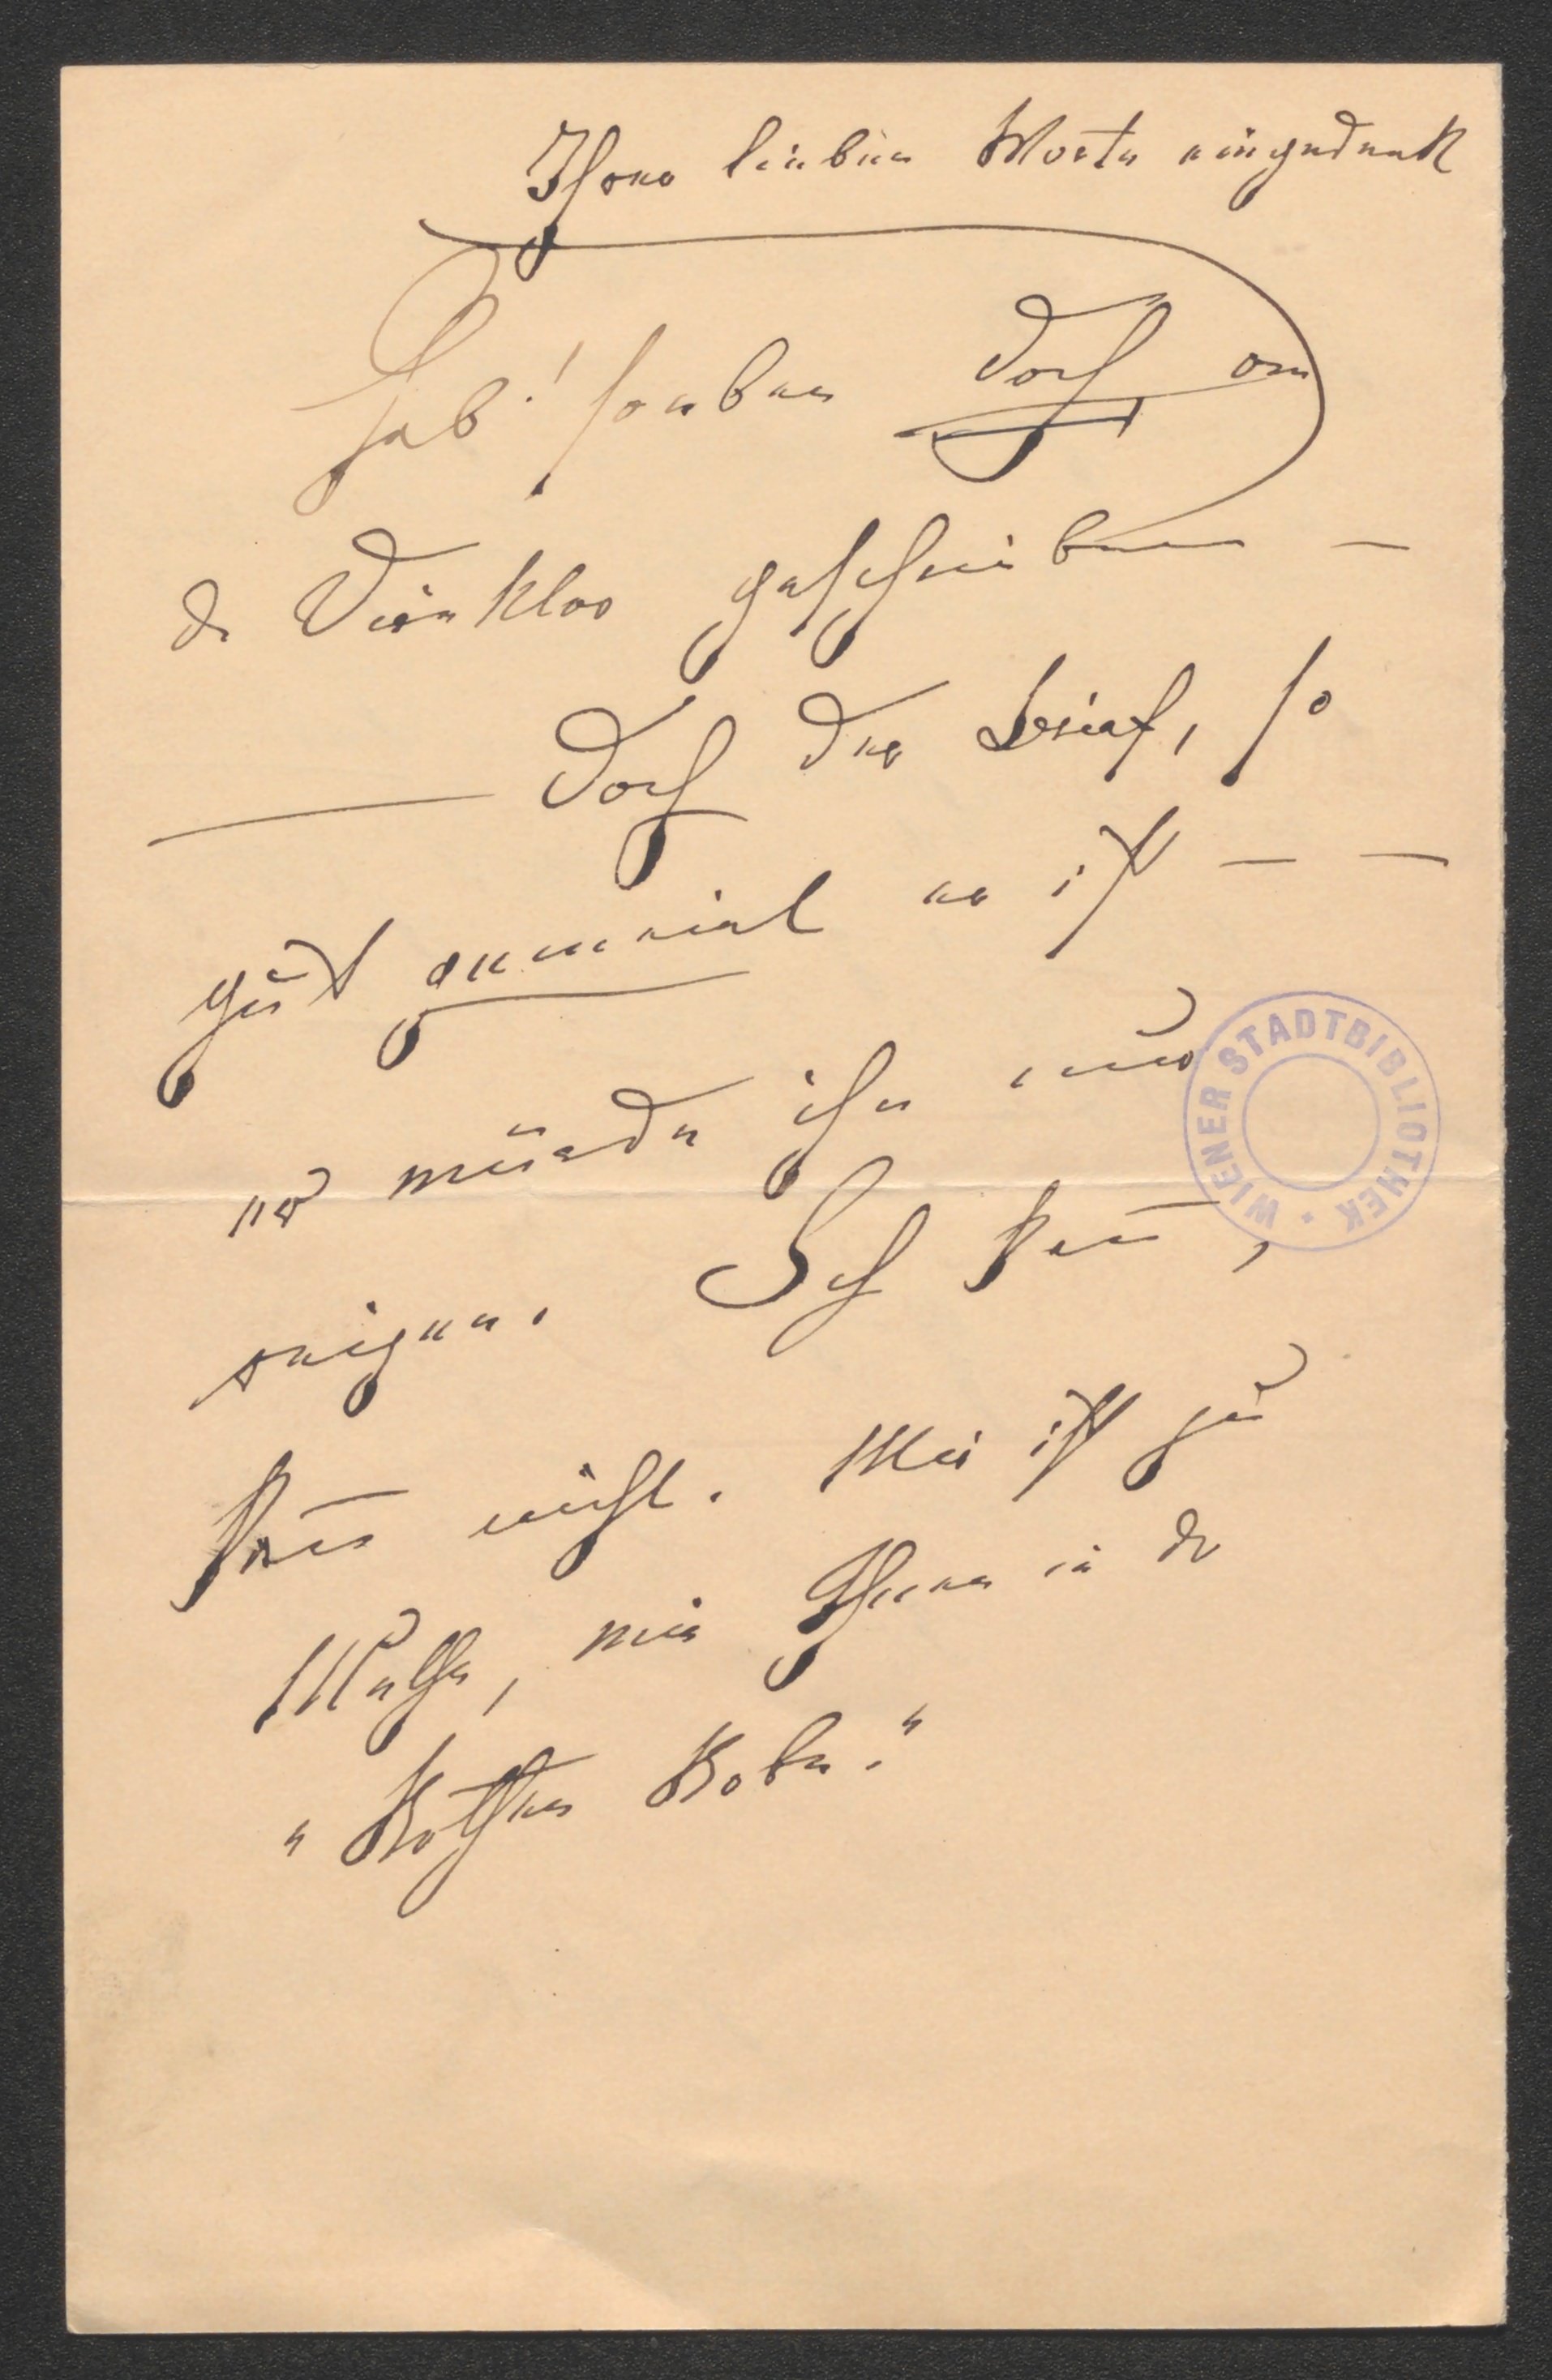 Ihrer lieben Worte eingedenk
Hab' soeben doch an
geschrieben —
— Doch der Brief, so
gut gemeint er ist — —
er würde ihn nur
reizen. Ich kann,
kann nicht. Mir ist zu
Muthe, wie Ihnen in der
"Rothen Robe."
WIENER STADTBIBLIOTHEK